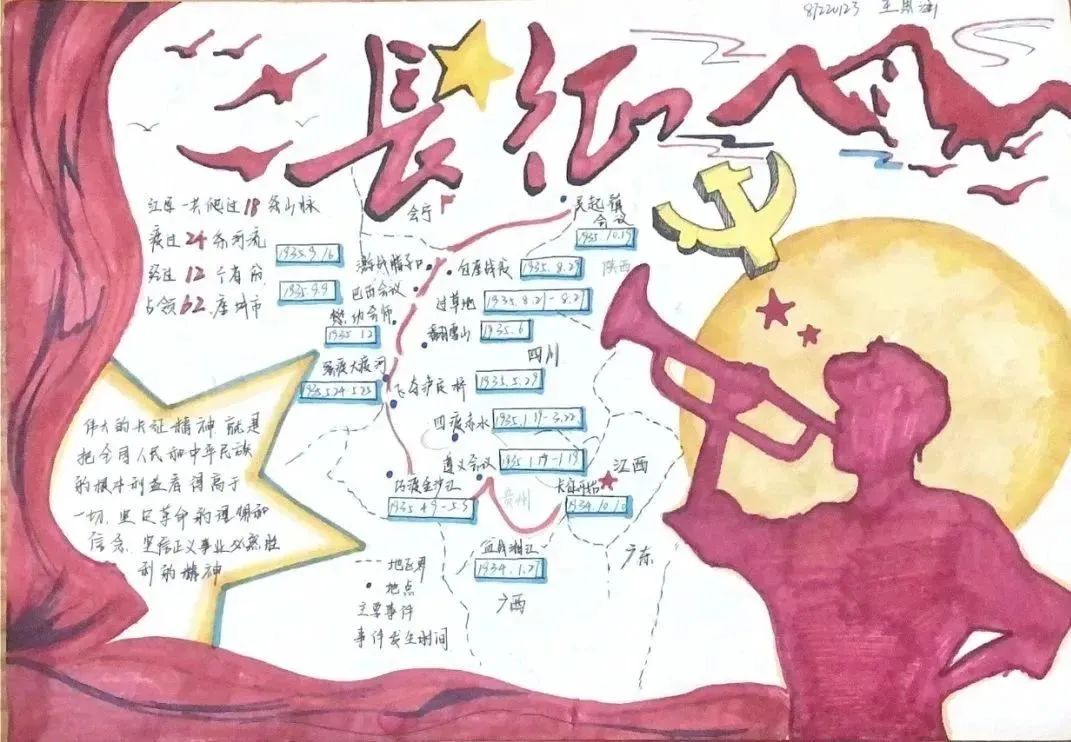 8220123 王
長征
红军一共爬过18条山脉
渡过24条河流
经过12个省份
占领62座城市
会宁
吴起镇
会议
1935.10.19
陕西
1935.9.16
激战腊子口
包座战役
1935.8.29
1935.9.9
巴西会议
过草地
1935.8.21-8.27
懋功会师
1935.12
翻雪山
1935.6
四川
强渡大渡河
1935.5.24-5.25
飞夺泸定桥
1935.5.29
四渡赤水
1935.1.19-3.22
遵义会议
1935.1.15-1.17
江西
巧渡金沙江
1935.4.9-5.3
贵州
长征开始
1934.10.10
血战湘江
1934.1.27
广东
广西
伟大的长征精神就是
把全国人民和中华民族
的根本利益看得高于
一切,坚定革命的理想和
信念,坚信正义事业必然胜
利的精神
地区界
地点
主要事件
事件发生时间